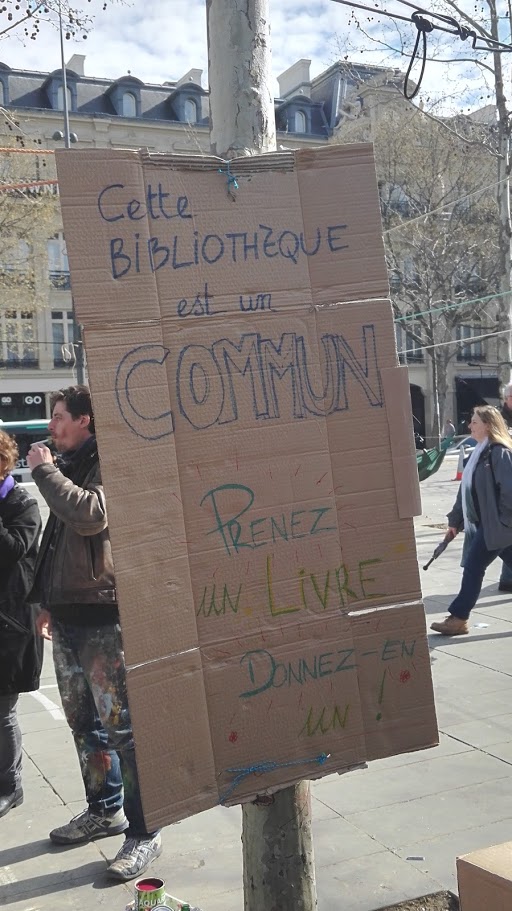 Cette
BIBLIOTHÈQUE
est un
COMMUN
PRENEZ
UN LIVRE
DONNEZ-EN
UN !
GO
AQUA